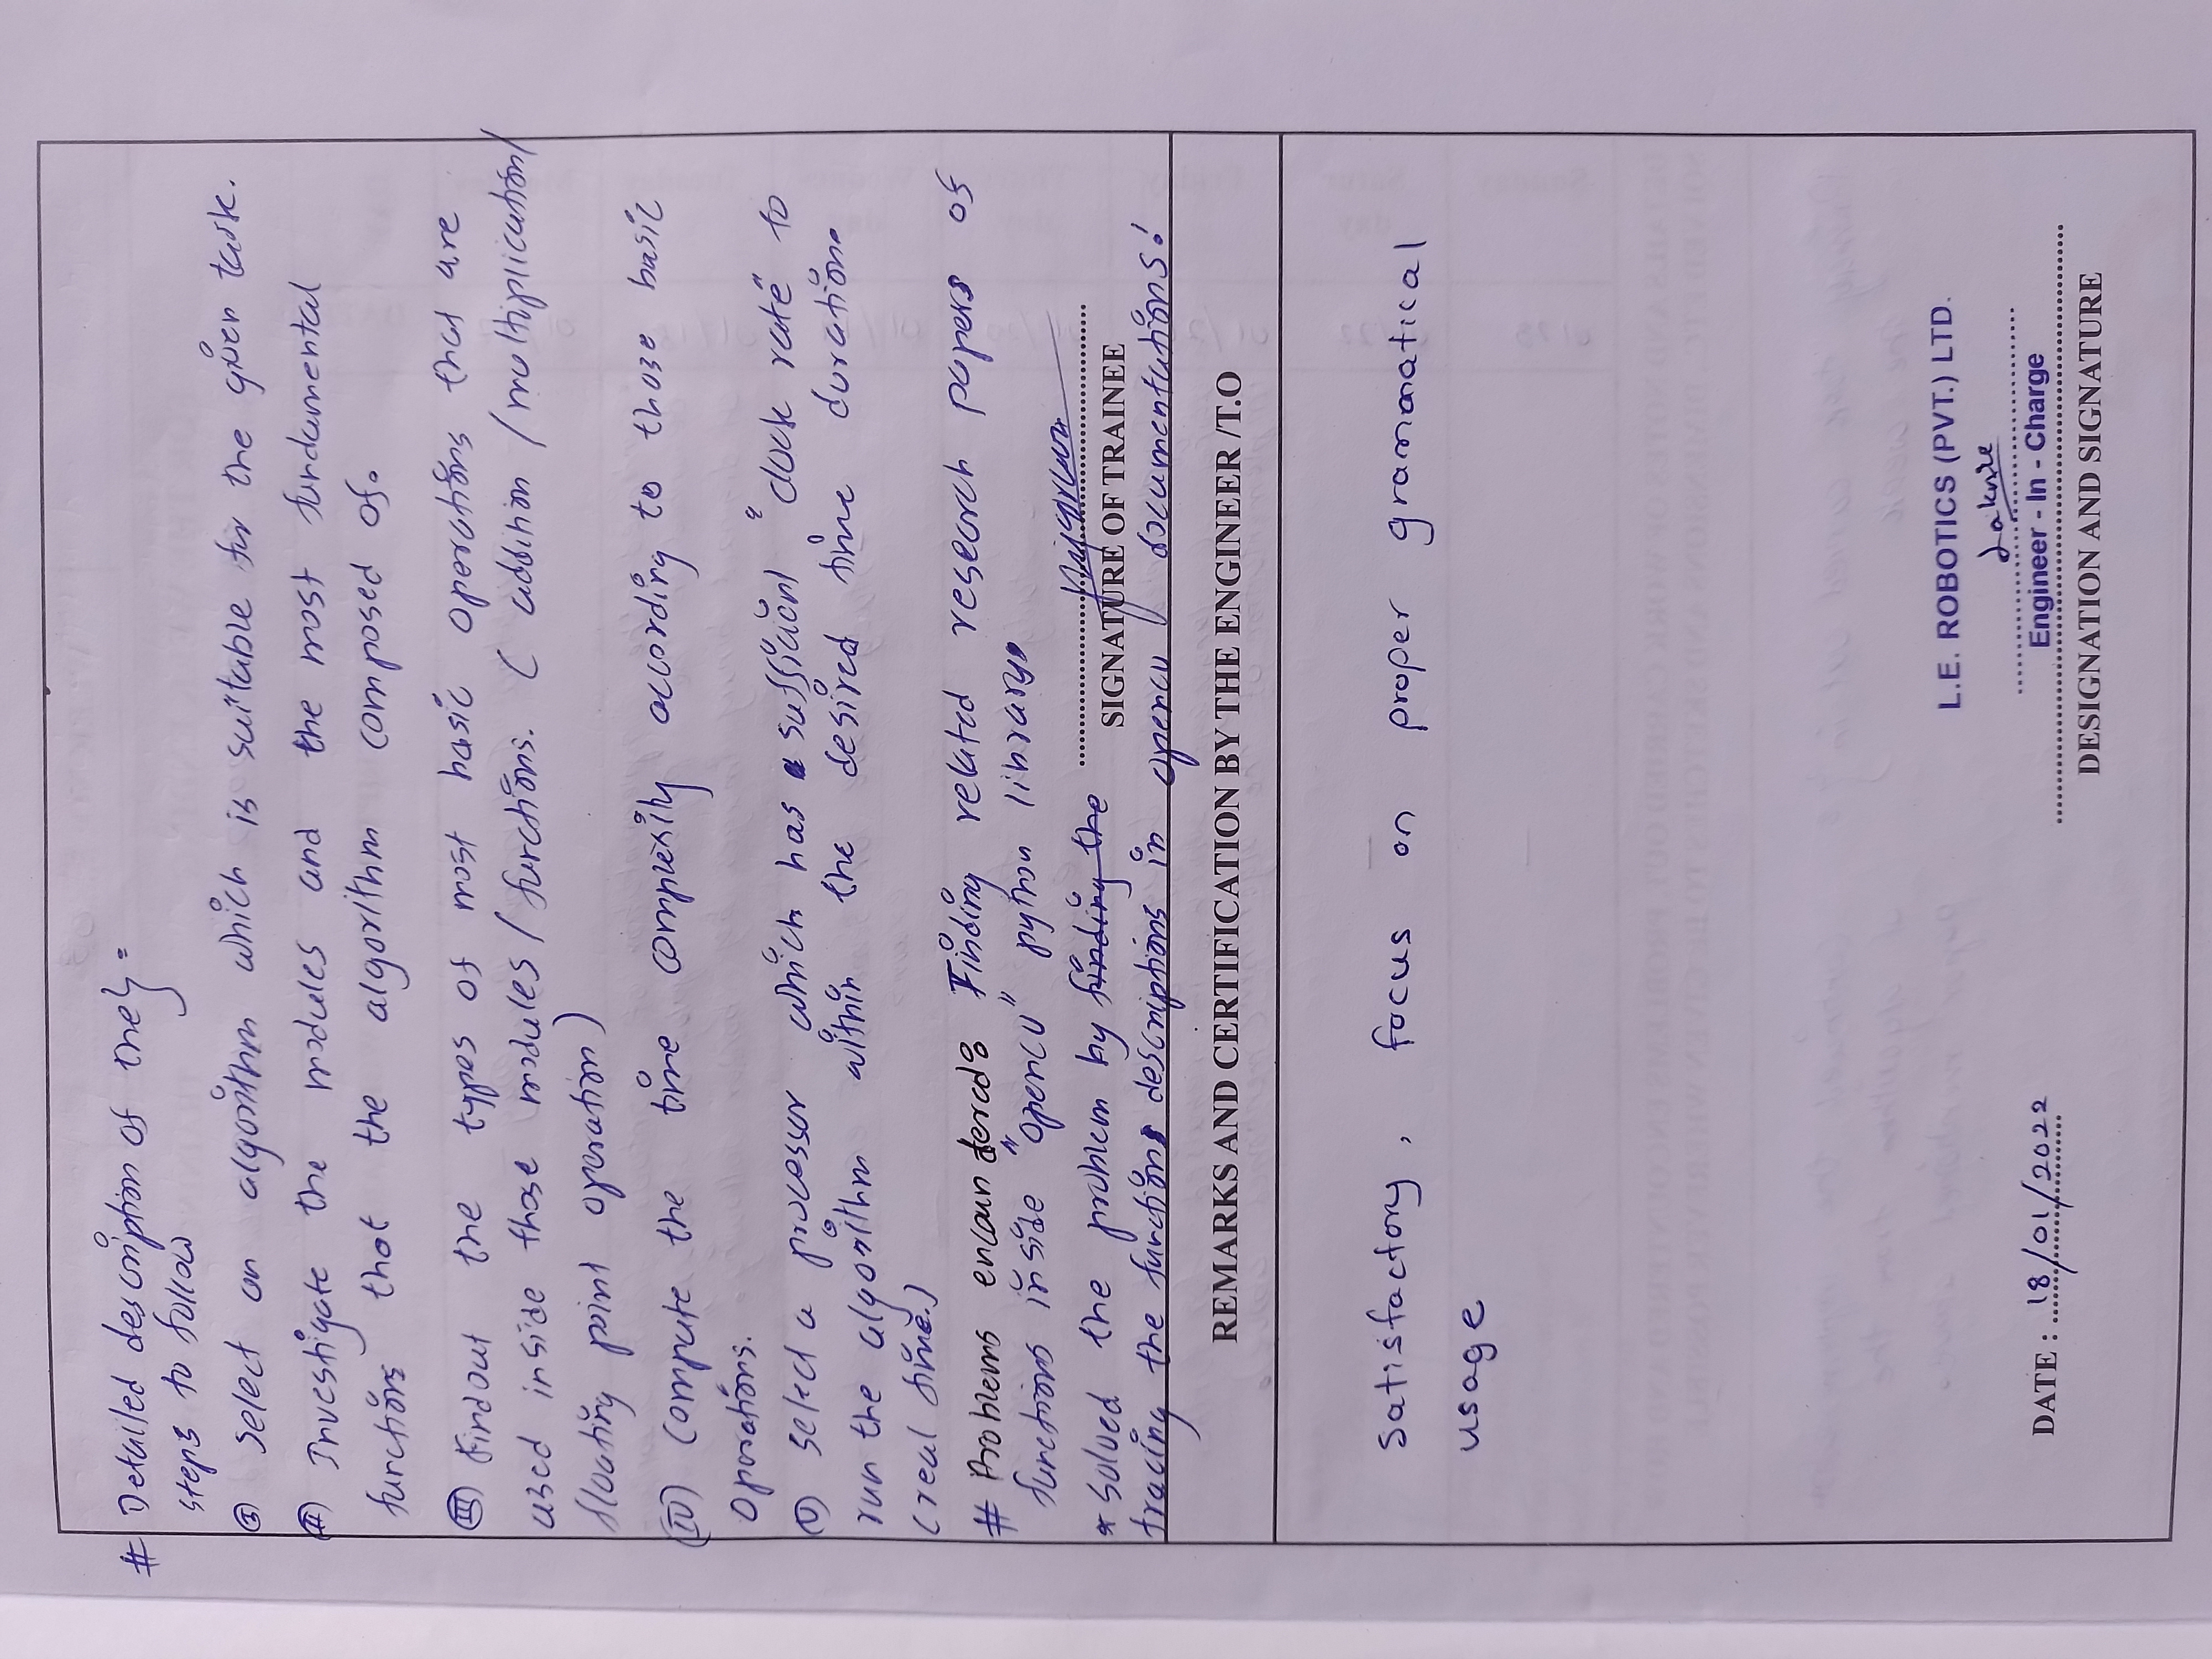 # Detailed description of the } :
steps to follow
(I) Select an algorithm which is suitable for the given task.
(II) Investigate the modules and the most fundamental
functions that the algorithm composed of.
(III) Findout the types of most basic operations that are
used inside those modules / functions. ( addition / multiplication /
floating point operation )
(IV) Compute the time complexity according to those basic
operations.
(V) Select a processor which has a sufficient "clock rate" to
run the algorithm within the desired time duration.
(real time.)
# Problems encountered: Finding related research papers of
functions inside "opencv" python library.
* Solved the problem by finding the
SIGNATURE OF TRAINEE
tracing the functions descriptions in opencv documentations!
REMARKS AND CERTIFICATION BY THE ENGINEER /T.O
Satisfactory, focus on proper grammatical
usage
L.E. ROBOTICS (PVT.) LTD.
Engineer - In - Charge
DATE : 18/01/2022
DESIGNATION AND SIGNATURE